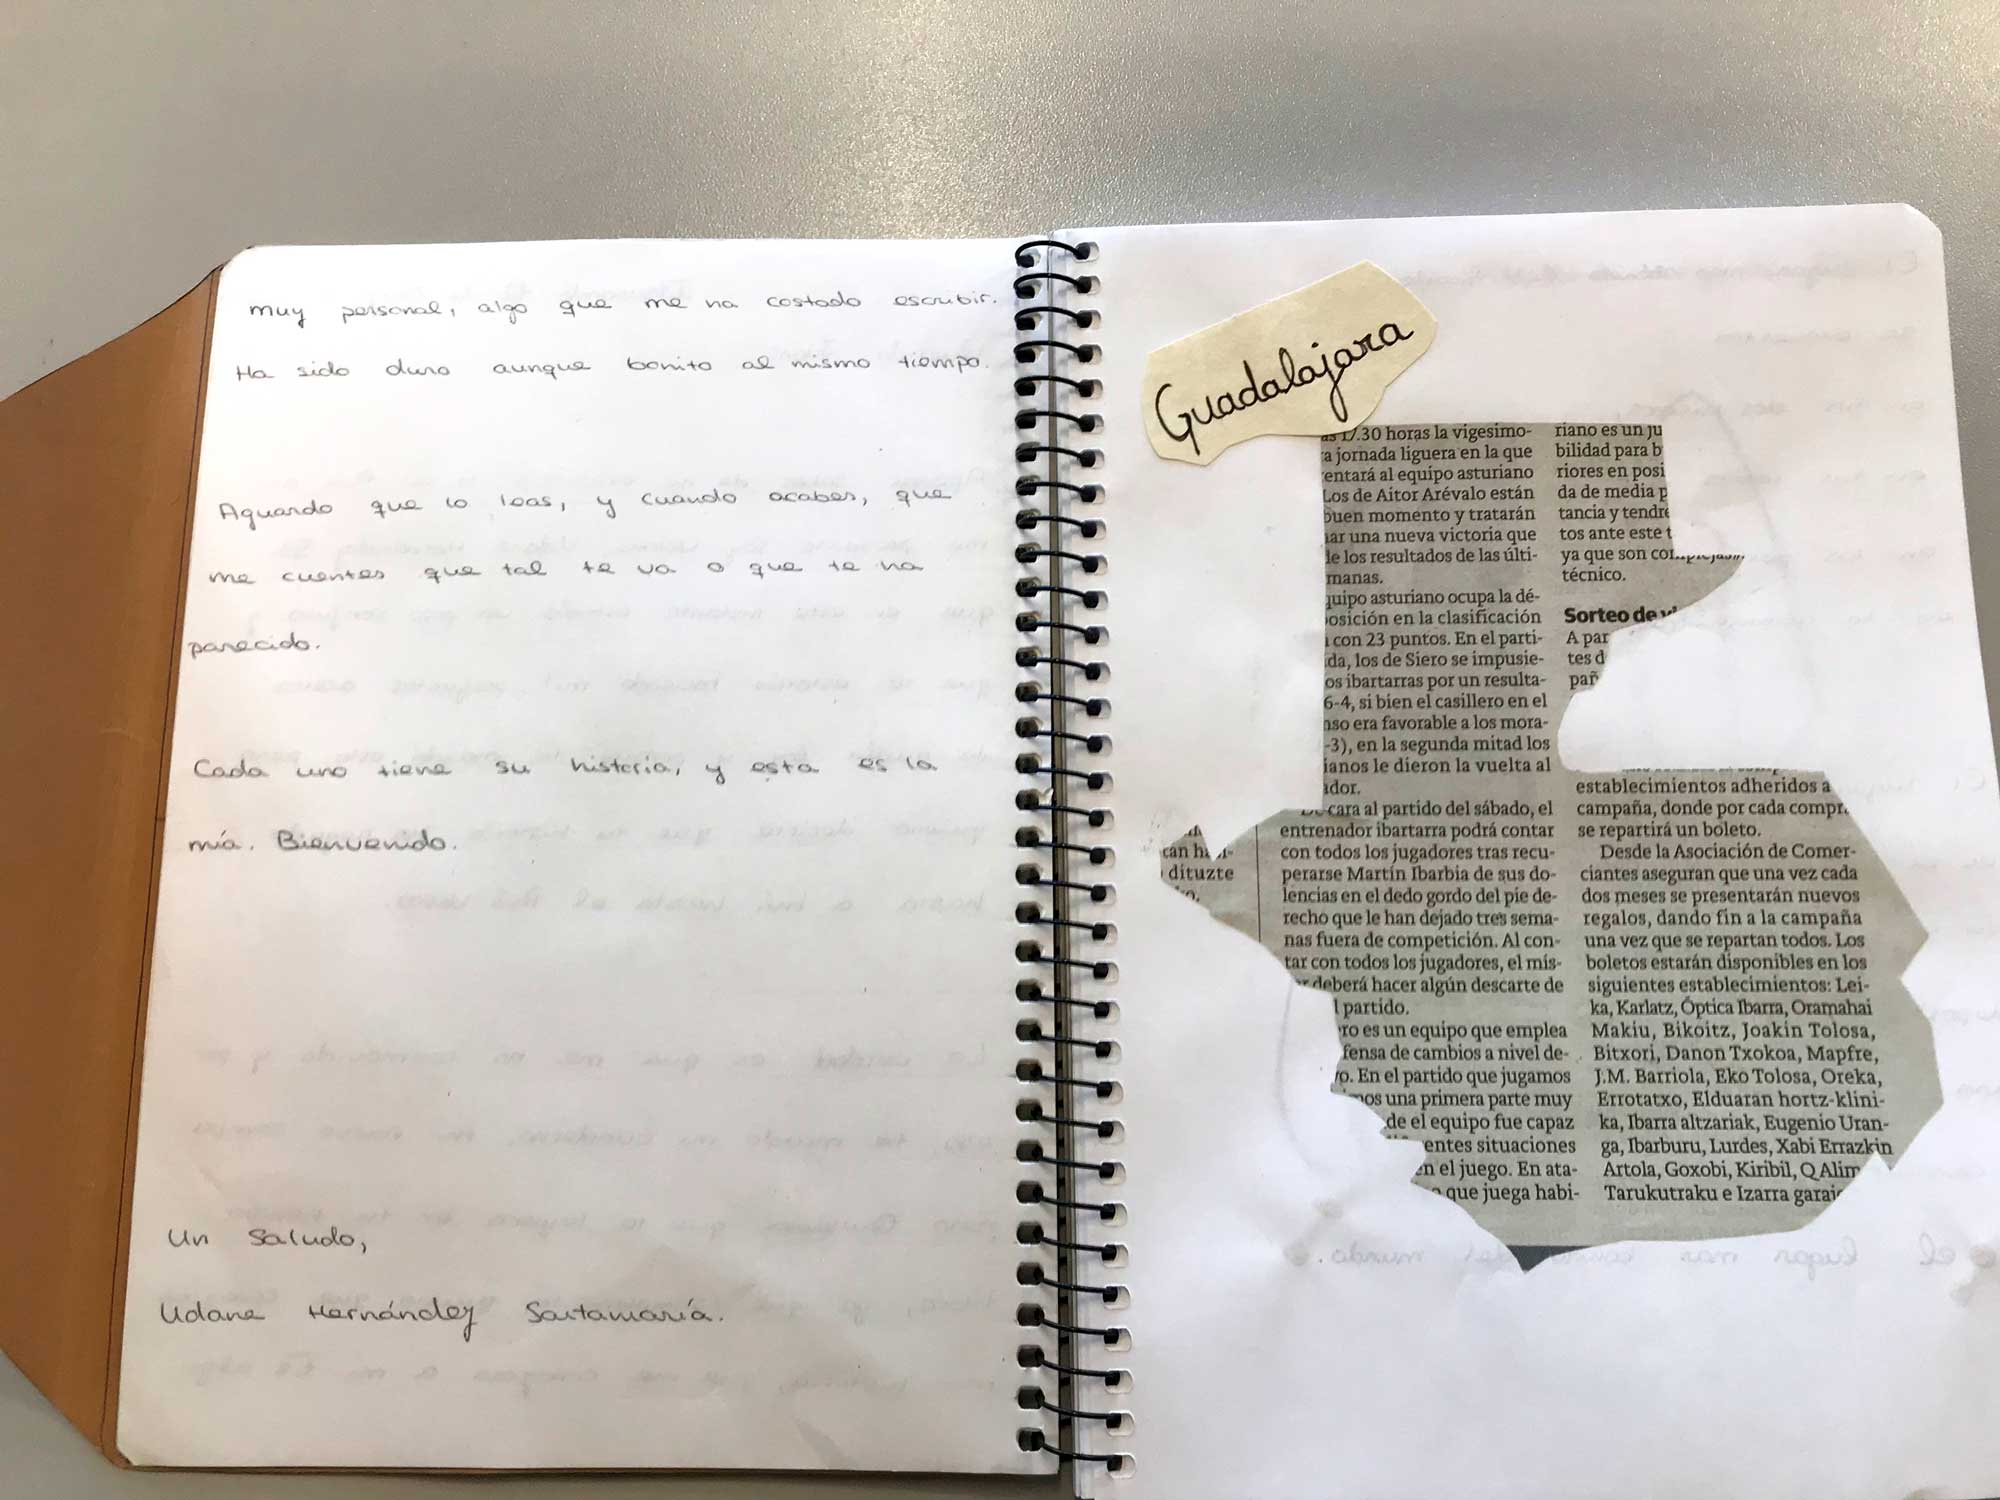 muy personal, algo que me ha costado escribir.
Ha sido duro aunque bonito al mismo tiempo.
Aguardo que lo leas, y cuando acabes, que
me cuentes que tal te va o que te ha
parecido.
Cada uno tiene su historia, y esta es la
mía. Bienvenido.
Un saludo,
Udane Hernández Santamaría.
Guadalajara
17.30 horas la vigesimo-
a jornada liguera en la que
entará al equipo asturiano
Los de Aitor Arévalo están
buen momento y tratarán
ar una nueva victoria que
de los resultados de las últi-
manas.
quipo asturiano ocupa la dé-
posición en la clasificación
con 23 puntos. En el parti-
da, los de Siero se impusie-
os ibartarras por un resulta-
6-4, si bien el casillero en el
nso era favorable a los mora-
-3), en la segunda mitad los
ianos le dieron la vuelta al
ador.
De cara al partido del sábado, el
entrenador ibartarra podrá contar
con todos los jugadores tras recu-
perarse Martín Ibarbia de sus do-
lencias en el dedo gordo del pie de-
recho que le han dejado tres sema-
nas fuera de competición. Al con-
tar con todos los jugadores, el mís-
er deberá hacer algún descarte de
l partido.
ro es un equipo que emplea
fensa de cambios a nivel de-
vo. En el partido que jugamos
mos una primera parte muy
de el equipo fue capaz
entes situaciones
en el juego. En ata-
que juega habi-
can ha
dituzte
riano es un ju
bilidad para b
riores en posi
da de media p
tancia y tendre
tos ante este t
ya que son complejas»,
técnico.
Sorteo de
A par
tes d
pañ
establecimientos adheridos a
campaña, donde por cada compr
se repartirá un boleto.
Desde la Asociación de Comer-
ciantes aseguran que una vez cada
dos meses se presentarán nuevos
regalos, dando fin a la campaña
una vez que se repartan todos. Los
boletos estarán disponibles en los
siguientes establecimientos: Lei-
ka, Karlatz, Óptica Ibarra, Oramahai
Makiu, Bikoitz, Joakin Tolosa,
Bitxori, Danon Txokoa, Mapfre,
J.M. Barriola, Eko Tolosa, Oreka,
Errotatxo, Elduaran hortz-klini-
ka, Ibarra altzariak, Eugenio Uran-
ga, Ibarburu, Lurdes, Xabi Errazkin
Artola, Goxobi, Kiribil, Q Alim
Tarukutraku e Izarra garaie